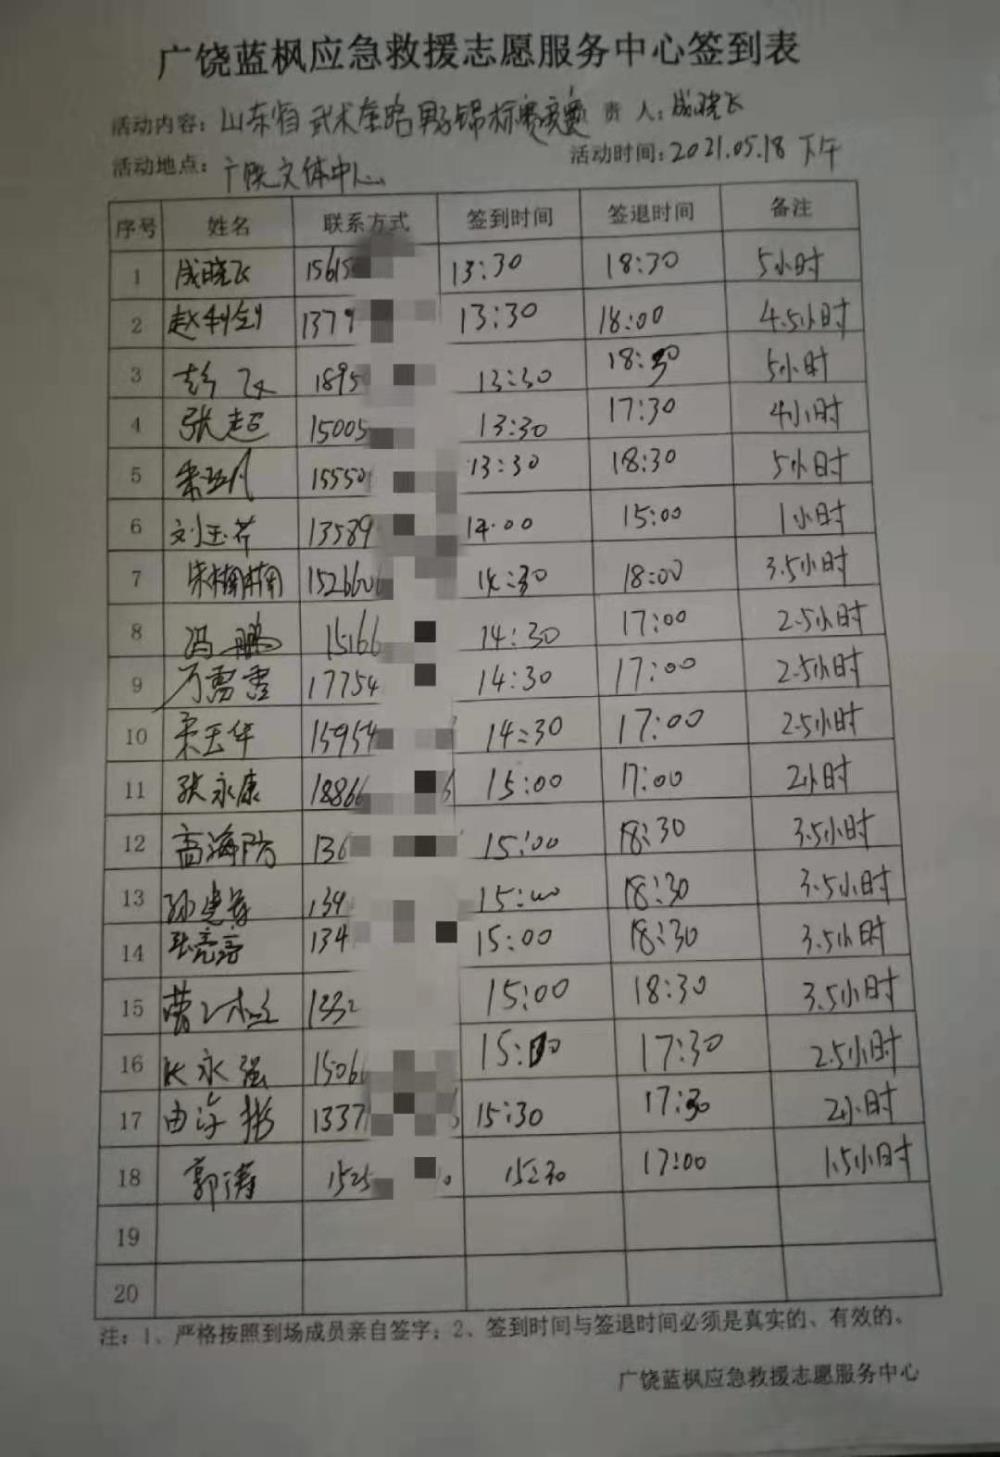 广饶蓝枫应急救援志愿服务中心签到表
活动内容：山东省武术套路男子锦标赛竞赛 责 人：成晓飞
活动地点：广饶文体中心 活动时间：2021.05.18 下午
序号 姓名 联系方式 签到时间 签退时间 备注
1 成晓飞 15615 13:30 18:30 5小时
2 赵利剑 1379 13:30 18:00 4.5小时
3 彭飞 1895 13:30 18:30 5小时
4 张超 15005 13:30 17:30 4小时
5 15550 13:30 18:30 5小时
6 刘玉芹 13589 14:00 15:00 1小时
7 宋楠楠 152660 14:30 18:00 3.5小时
8 冯鹏 15166 14:30 17:00 2.5小时
9 万雷雷 17754 14:30 17:00 2.5小时
10 宋玉华 15954 14:30 17:00 2.5小时
11 张永康 18866 15:00 17:00 2小时
12 高海防 136 15:00 18:30 3.5小时
13 孙建 139 15:00 18:30 3.5小时
14 张亮亮 134 15:00 18:30 3.5小时
15 曹 1332 15:00 18:30 3.5小时
16 张永强 1506 15:00 17:30 2.5小时
17 由 彬 1337 15:30 17:30 2小时
18 郭涛 1525 15:30 17:00 1.5小时
19
20
注：1、严格按照到场成员亲自签字；2、签到时间与签退时间必须是真实的、有效的。
广饶蓝枫应急救援志愿服务中心